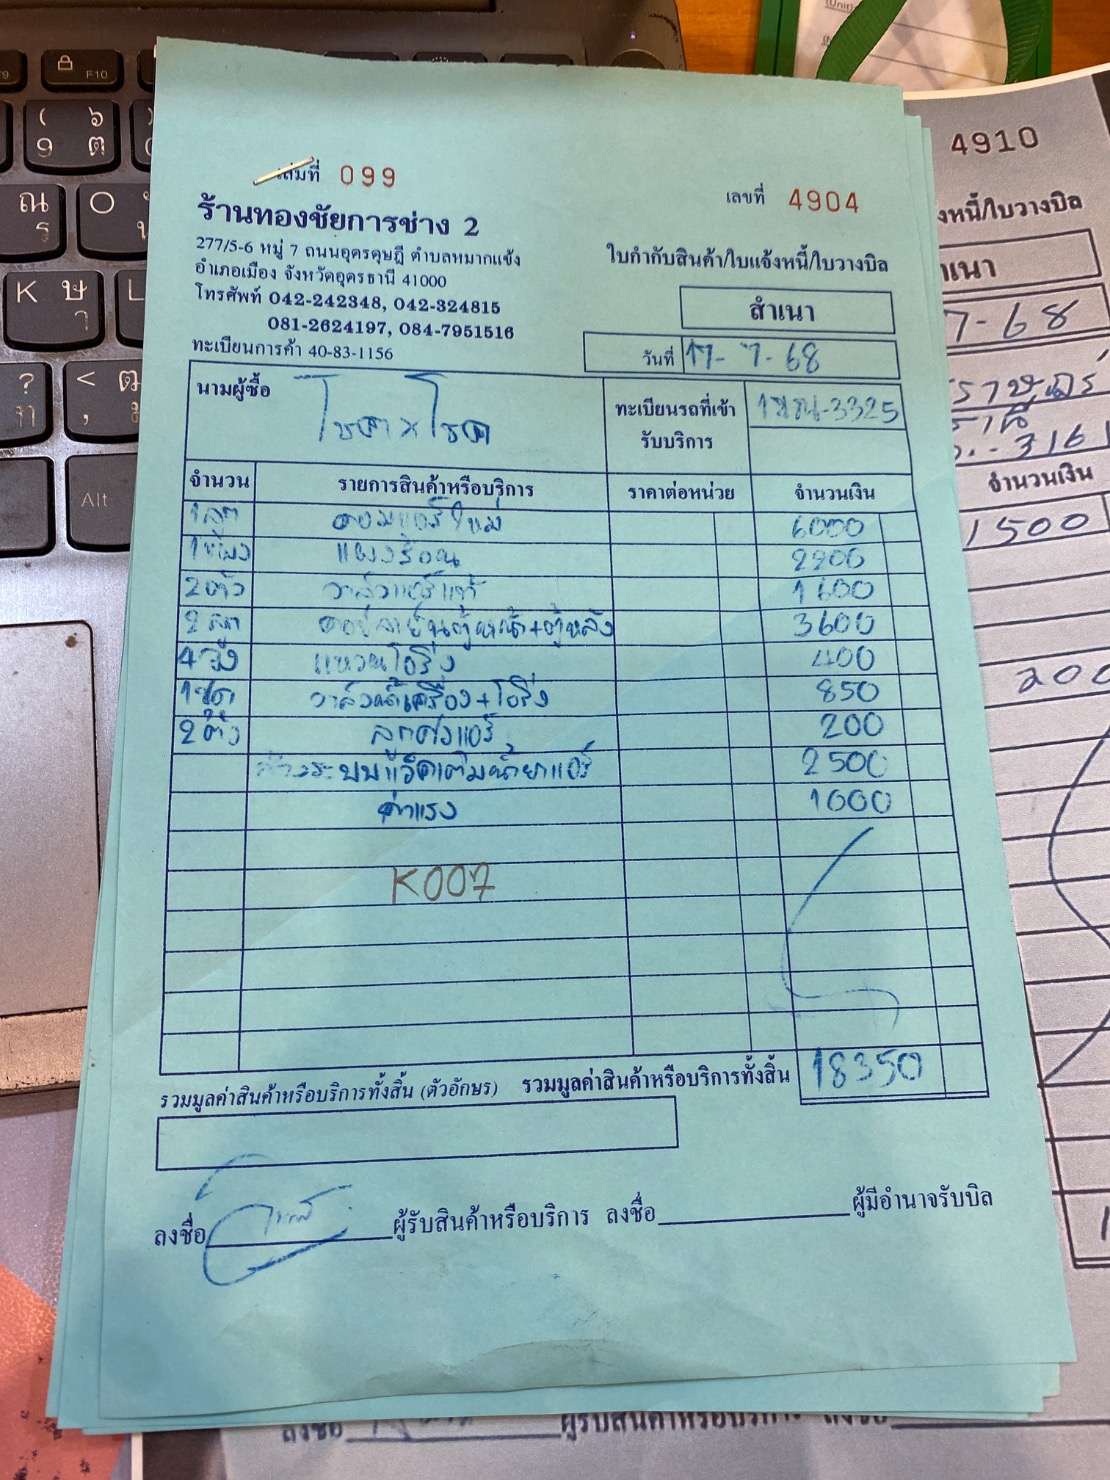 เล่มที่ 099
เลขที่ 4904
ร้านทองชัยการช่าง 2
277/5-6 หมู่ 7 ถนนอุดรดุษฎี ตำบลหมากแข้ง
อำเภอเมือง จังหวัดอุดรธานี 41000
โทรศัพท์ 042-242348, 042-324815
081-2624197, 084-7951516
ทะเบียนการค้า 40-83-1156
ใบกำกับสินค้า/ใบแจ้งหนี้/ใบวางบิล
สำเนา
วันที่ 17-7-68
นามผู้ซื้อ
ทะเบียนรถที่เข้า -3325
รับบริการ
จำนวน รายการสินค้าหรือบริการ ราคาต่อหน่วย จำนวนเงิน
1ลูก คอมแอร์ใหม่ 6000
1แผง แผงร้อน 2200
2ตัว วาล์วแอร์แท้ 1600
2ลูก คอยล์เย็นตู้หน้า+ตู้หลัง 3600
4วง แหวนโอริง 400
1ชุด วาล์วเครื่อง+โอริง 850
2ตัว ลูกศรแอร์ 200
ล้างระบบแว็คเติมน้ำยาแอร์ 2500
ค่าแรง 1000
K007
รวมมูลค่าสินค้าหรือบริการทั้งสิ้น (ตัวอักษร) รวมมูลค่าสินค้าหรือบริการทั้งสิ้น 18350
ลงชื่อ ผู้รับสินค้าหรือบริการ ลงชื่อ ผู้มีอำนาจรับบิล
4910
งหนี้/ใบวางบิล
เนา
7-68
316
จำนวนเงิน
1500
200
ลงชื่อ ผู้รับสินค้าหรือบริการ
F10
Alt
K
L